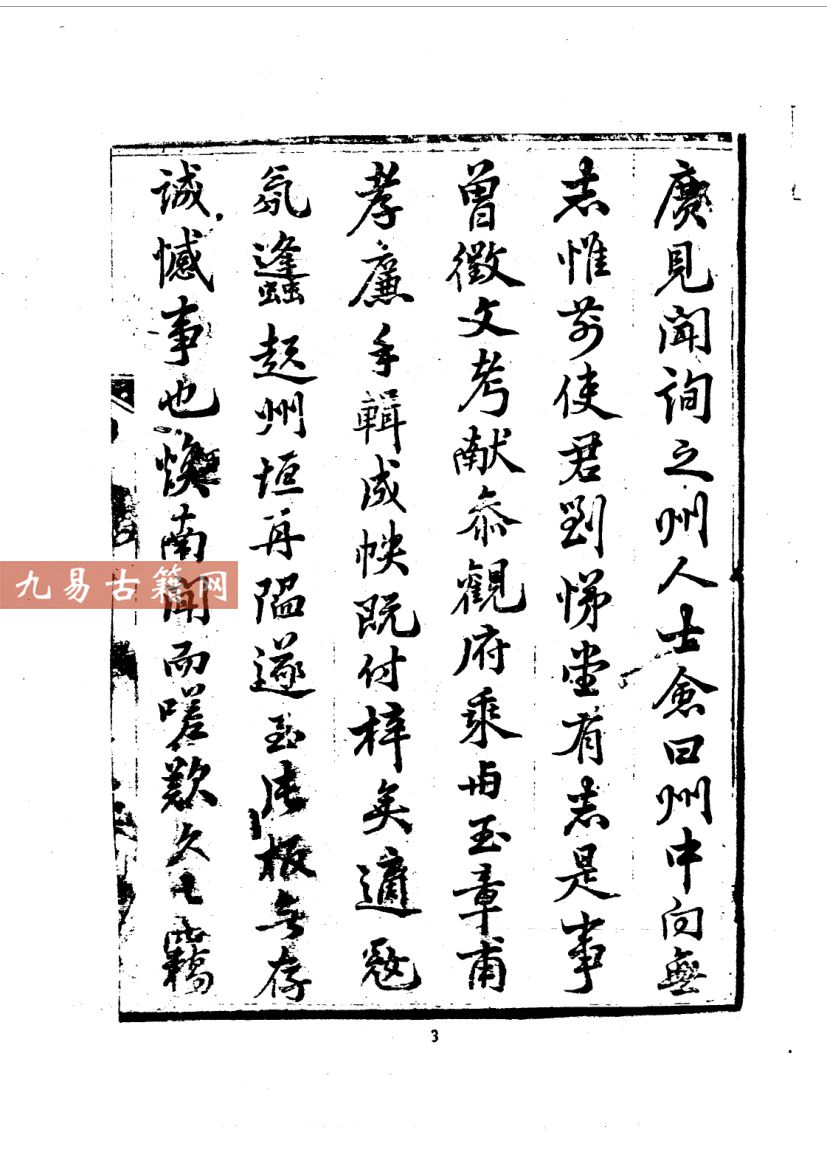 廣見聞詢之州人士僉曰州中向無
志惟前使君劉悌堂有志是事
曾徵文考献叅觀府乘與玉章甫
孝廉手輯成帙既付梓矣適寇
氛蠭起州垣再陷遂至片板無存
誠憾事也煥南聞而嗟歎久之藳
九易古籍网
3